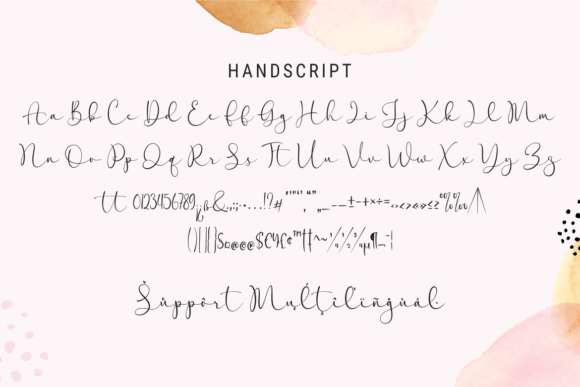 HANDSCRIPT
Aa Bb Cc Dd Ee Ff Gg Hh Ii Jj Kk Ll Mm
Nn Oo Pp Qq Rr Ss Tt Uu Vv Ww Xx Yy Zz
tt 0123456789 &.,:; !?# ±-+×÷=
()[]{} $€¥£¢™ ^~ ½
Šùppôrt Mųļţįľïñġùáŀ